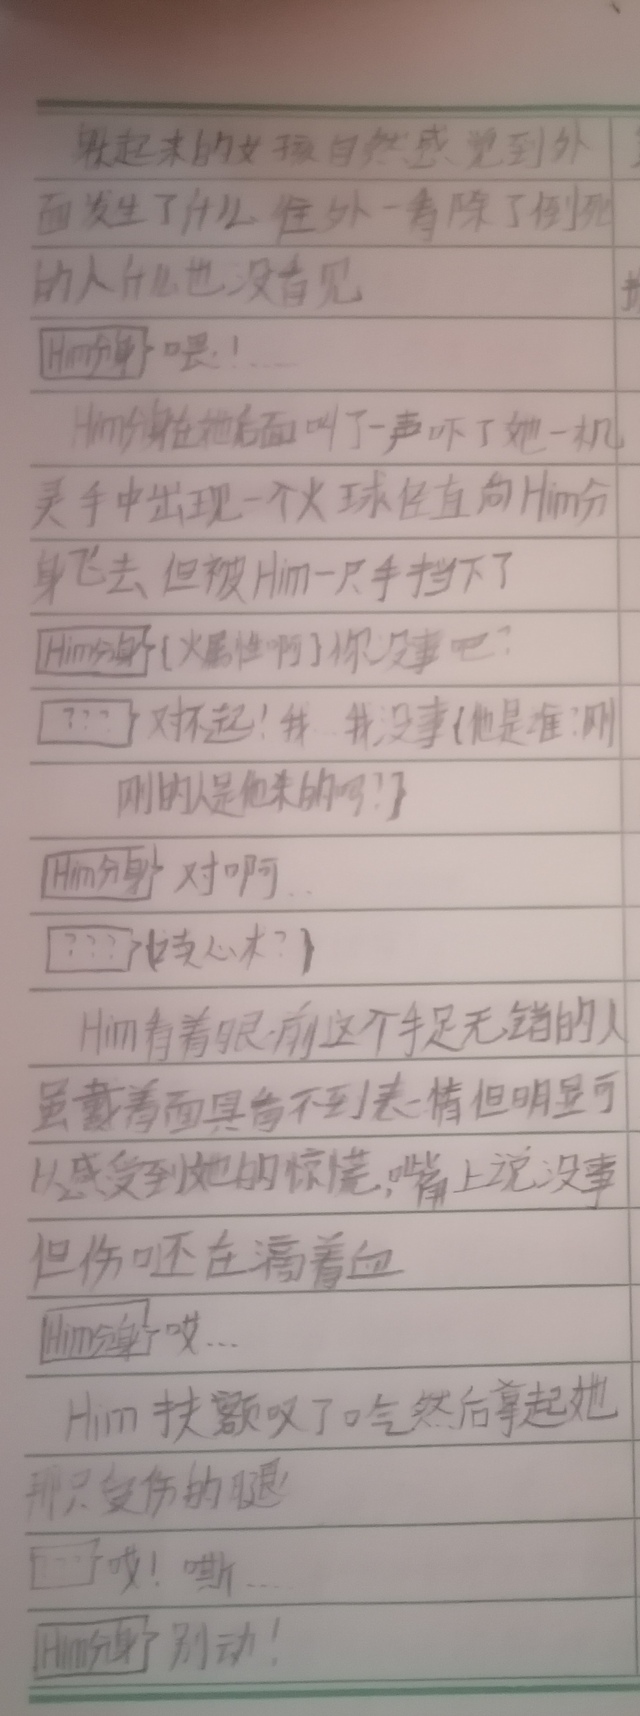 躲起来的女孩自然感觉到外
面发生了什么往外一看除了倒死
的人什么也没看见
Him分身 喂！……
Him分身在她后面叫了一声吓了她一机
灵手中出现一个火球径直向Him分
身飞去、但被Him一只手挡下了
Him分身 {火属性啊}你没事吧？
??? 对不起！我…我没事{他是谁？刚
刚的人是他来的吗？}
Him分身 对啊…
??? {读心术？}
Him看着眼前这个手足无错的人
虽戴着面具看不到表情但明显可
以感受到她的惊慌，嘴上说没事
但伤口还在滴着血
Him分身 哎…
Him扶额叹了口气然后拿起她
那只受伤的腿
??? 哎！嘶……
Him分身 别动！